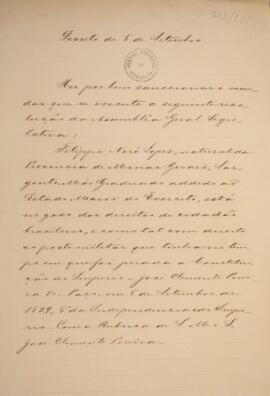 Decreto de 5 de Setembro
Hei por bem sanccionar e man
dar que se execute a seguinte reso
lução da Assembléa Geral Legis
lativa:
Felippe Neri Lopes, natural da
Provincia de Minas Geraes, Sar
gento Mór Graduado addido ao
Estado Maior do Exercito, está
no goso dos direitos de cidadão
brasileiro, e como tal com direito
ao posto militar que tinha no tem
po em que foi jurada a Constitui
ção do Imperio - José Clemente Perei
ra. Paço, em 5 de Setembro de
1829, 8º da Independencia e do Impe
rio. Com a Rubrica de S. M. o I.
José Clemente Pereira.